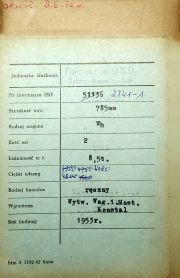 Jednostka służbowa
Nr inwentarza PKP 51136 2741-1
Szerokość toru 785mm
Rodzaj wagonu Wh
Ilość osi 2
Ładowność w t. 8,5t.
Ciężar własny
Rodzaj hamulca ręczny
Wytwórnia Wytw. Wag.i Most.
Konstal
Rok budowy 1953r.